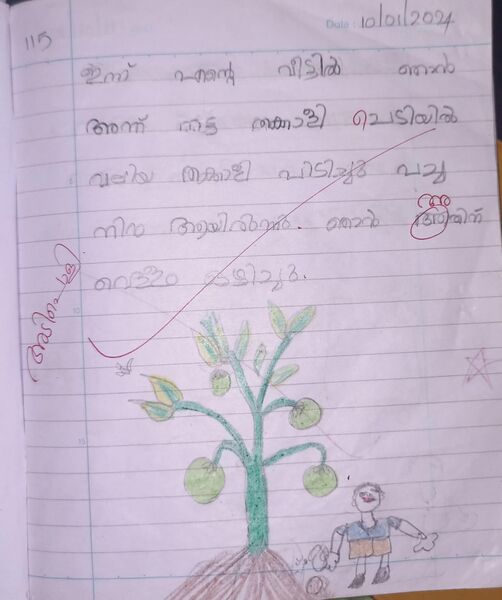 115
Date: 10/01/2024
ഇന്ന് എന്റെ വീട്ടിൽ ഞാൻ
അന്ന് നട്ട തക്കാളി ചെടിയിൽ
വലിയ തക്കാളി പിടിച്ചു പച്ച
നിറം ആയിരുന്നു. ഞാൻ അതിന്
വെള്ളം ഒഴിച്ചു.